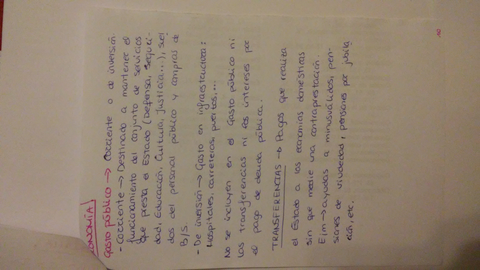 ECONOMÍA
GASTO PÚBLICO → Corriente o de inversión
- Corriente → Destinado a mantener el
funcionamiento del conjunto de servicios
que presta el Estado (Defensa, Seguri-
dad, Educación, Cultura, Justicia...), suel
dos del personal público y compras de
B/S.
- De inversión → Gasto en infraestructura:
Hospitales, carreteras, puertos...
No se incluyen en el Gasto público ni
las transferencias ni los intereses por
el pago de deuda pública.
TRANSFERENCIAS → Pagos que realiza
el Estado a las economías domésticas
sin que medie una contraprestación.
Ejm → ayudas a minusválidos, pen-
siones de viudedad, pensiones por jubila
ción, etc.